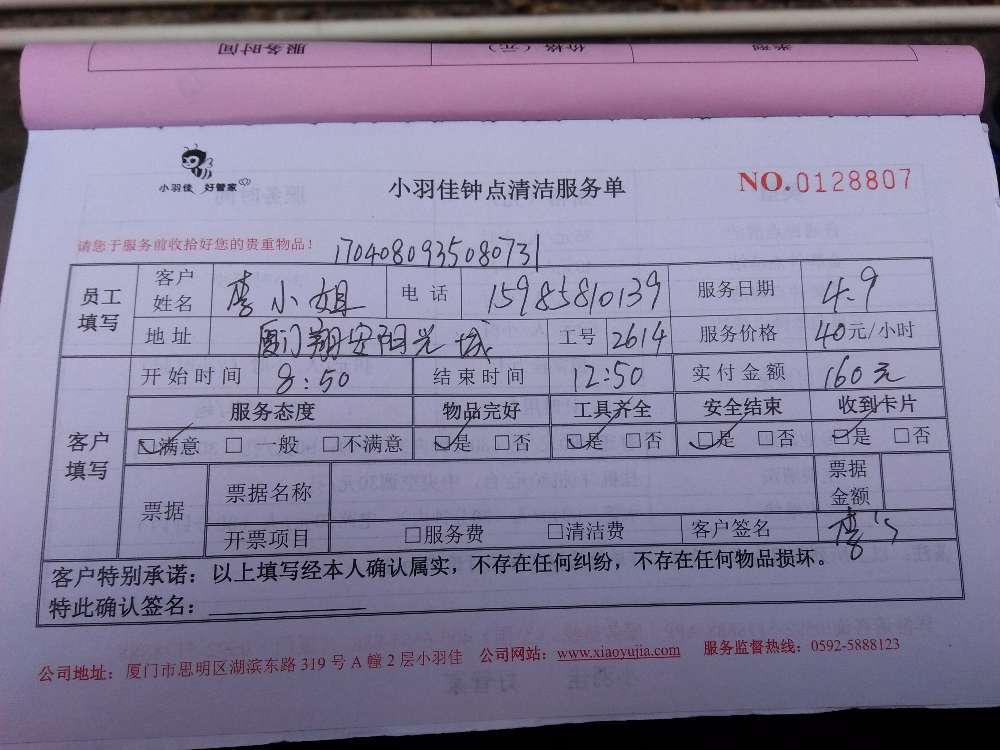 服务时间 价格（元） 类型
小羽佳 好管家
小羽佳钟点清洁服务单
NO.0128807
请您于服务前收拾好您的贵重物品！
1704080935080731
员工填写 客户姓名 李小姐 电话 15985810139 服务日期 4.9
地址 厦门翔安阳光城 工号 2614 服务价格 40元/小时
客户填写 开始时间 8:50 结束时间 12:50 实付金额 160元
服务态度 物品完好 工具齐全 安全结束 收到卡片
☑满意 □一般 □不满意 ☑是 □否 ☑是 □否 ☑是 □否 ☑是 □否
票据 票据名称 票据金额
开票项目 □服务费 □清洁费 客户签名 李's
客户特别承诺：以上填写经本人确认属实，不存在任何纠纷，不存在任何物品损坏。
特此确认签名：
公司地址：厦门市思明区湖滨东路 319 号 A 幢 2 层小羽佳 公司网站：www.xiaoyujia.com 服务监督热线：0592-5888123